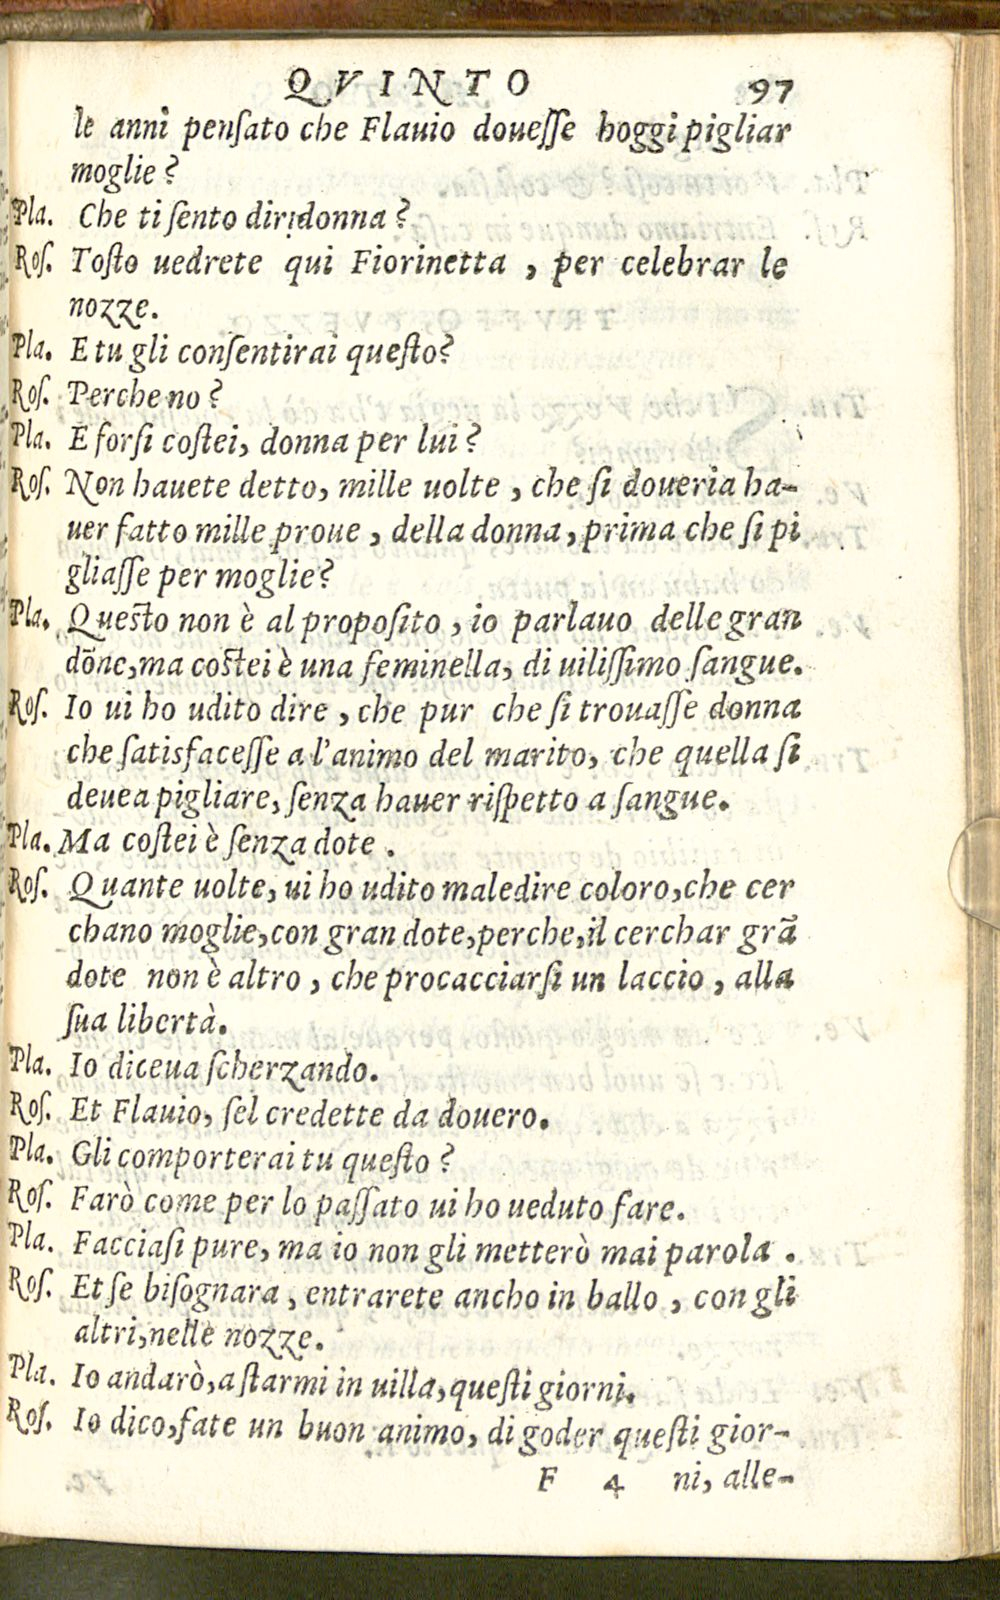 QVINTO 97
le anni penſato che Flauio doueſſe hoggi pigliar
moglie?
Pla. Che ti ſento dir, donna?
Roſ. Toſto uedrete qui Fiorinetta, per celebrar le
nozze.
Pla. E tu gli conſentirai queſto?
Roſ. Perche no?
Pla. E forſi coſtei, donna per lui?
Roſ. Non hauete detto, mille uolte, che ſi doueria ha-
uer fatto mille proue, della donna, prima che ſi pi
gliaſſe per moglie?
Pla. Queſto non è al propoſito, io parlauo delle gran
dõne, ma coſtei è una feminella, di uiliſſimo ſangue.
Roſ. Io ui ho udito dire, che pur che ſi trouaſſe donna
che ſatisfaceſſe a l'animo del marito, che quella ſi
deuea pigliare, ſenza hauer riſpetto a ſangue.
Pla. Ma coſtei è ſenza dote.
Roſ. Quante uolte, ui ho udito maledire coloro, che cer
chano moglie, con gran dote, perche, il cerchar grã
dote non è altro, che procacciarſi un laccio, alla
ſua libertà.
Pla. Io diceua ſcherzando.
Roſ. Et Flauio, ſel credette da douero.
Pla. Gli comporterai tu queſto?
Roſ. Farò come per lo paſſato ui ho ueduto fare.
Pla. Facciaſi pure, ma io non gli metterò mai parola.
Roſ. Et ſe biſognara, entrarete ancho in ballo, con gli
altri, nelle nozze.
Pla. Io andarò, a ſtarmi in uilla, queſti giorni.
Roſ. Io dico, fate un buon animo, di goder queſti gior-
F 4 ni, alle-